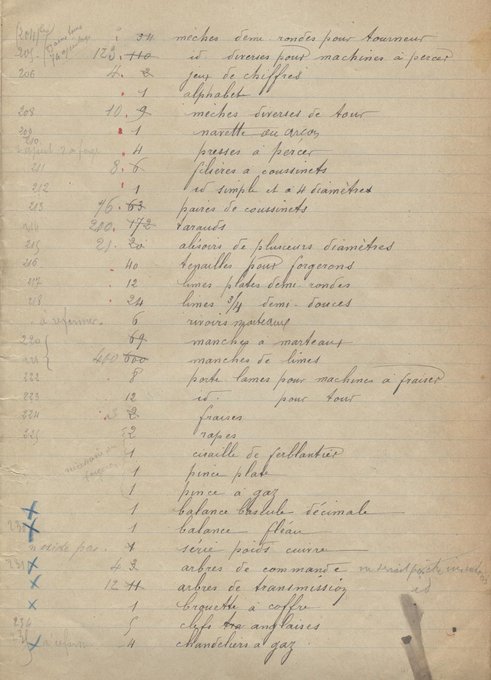 204 34 mèches demi-rondes pour tourneur
205 123. 110 id diverses pour machines à percer
206 4. 2 jeux de chiffres
1 alphabet
208 10. 9 mèches diverses de tour
209 1 navette ou arçon
210 4 presses à percer
211 8. 6 filières à coussinets
212 1 id simple et à 4 diamètres
213 76. 63 paires de coussinets
214 200. 172 tarauds
215 21. 20 alisoirs de plusieurs diamètres
216 40 tenailles pour forgerons
217 12 limes plates demi-rondes
218 24 limes 3/4 demi-douces
à refermer 6 rivoirs marteaux
220 69 manches à marteaux
221 400 600 manches de limes
222 8 porte lames pour machines à fraiser
223 12 id. pour tour
224 3 2 fraises
225 2 rapes
1 cisaille de ferblantier
1 pince plate
1 pince à gaz
x 1 balance bascule décimale
230 x 1 balance fléau
n'existe pas 1 série poids cuivre
231 x 4 3 arbres de commande
x 12 11 arbres de transmission id
x 1 brouette à coffre
234 5 clefs anglaises
235 x à refermer 4 chandeliers à gaz